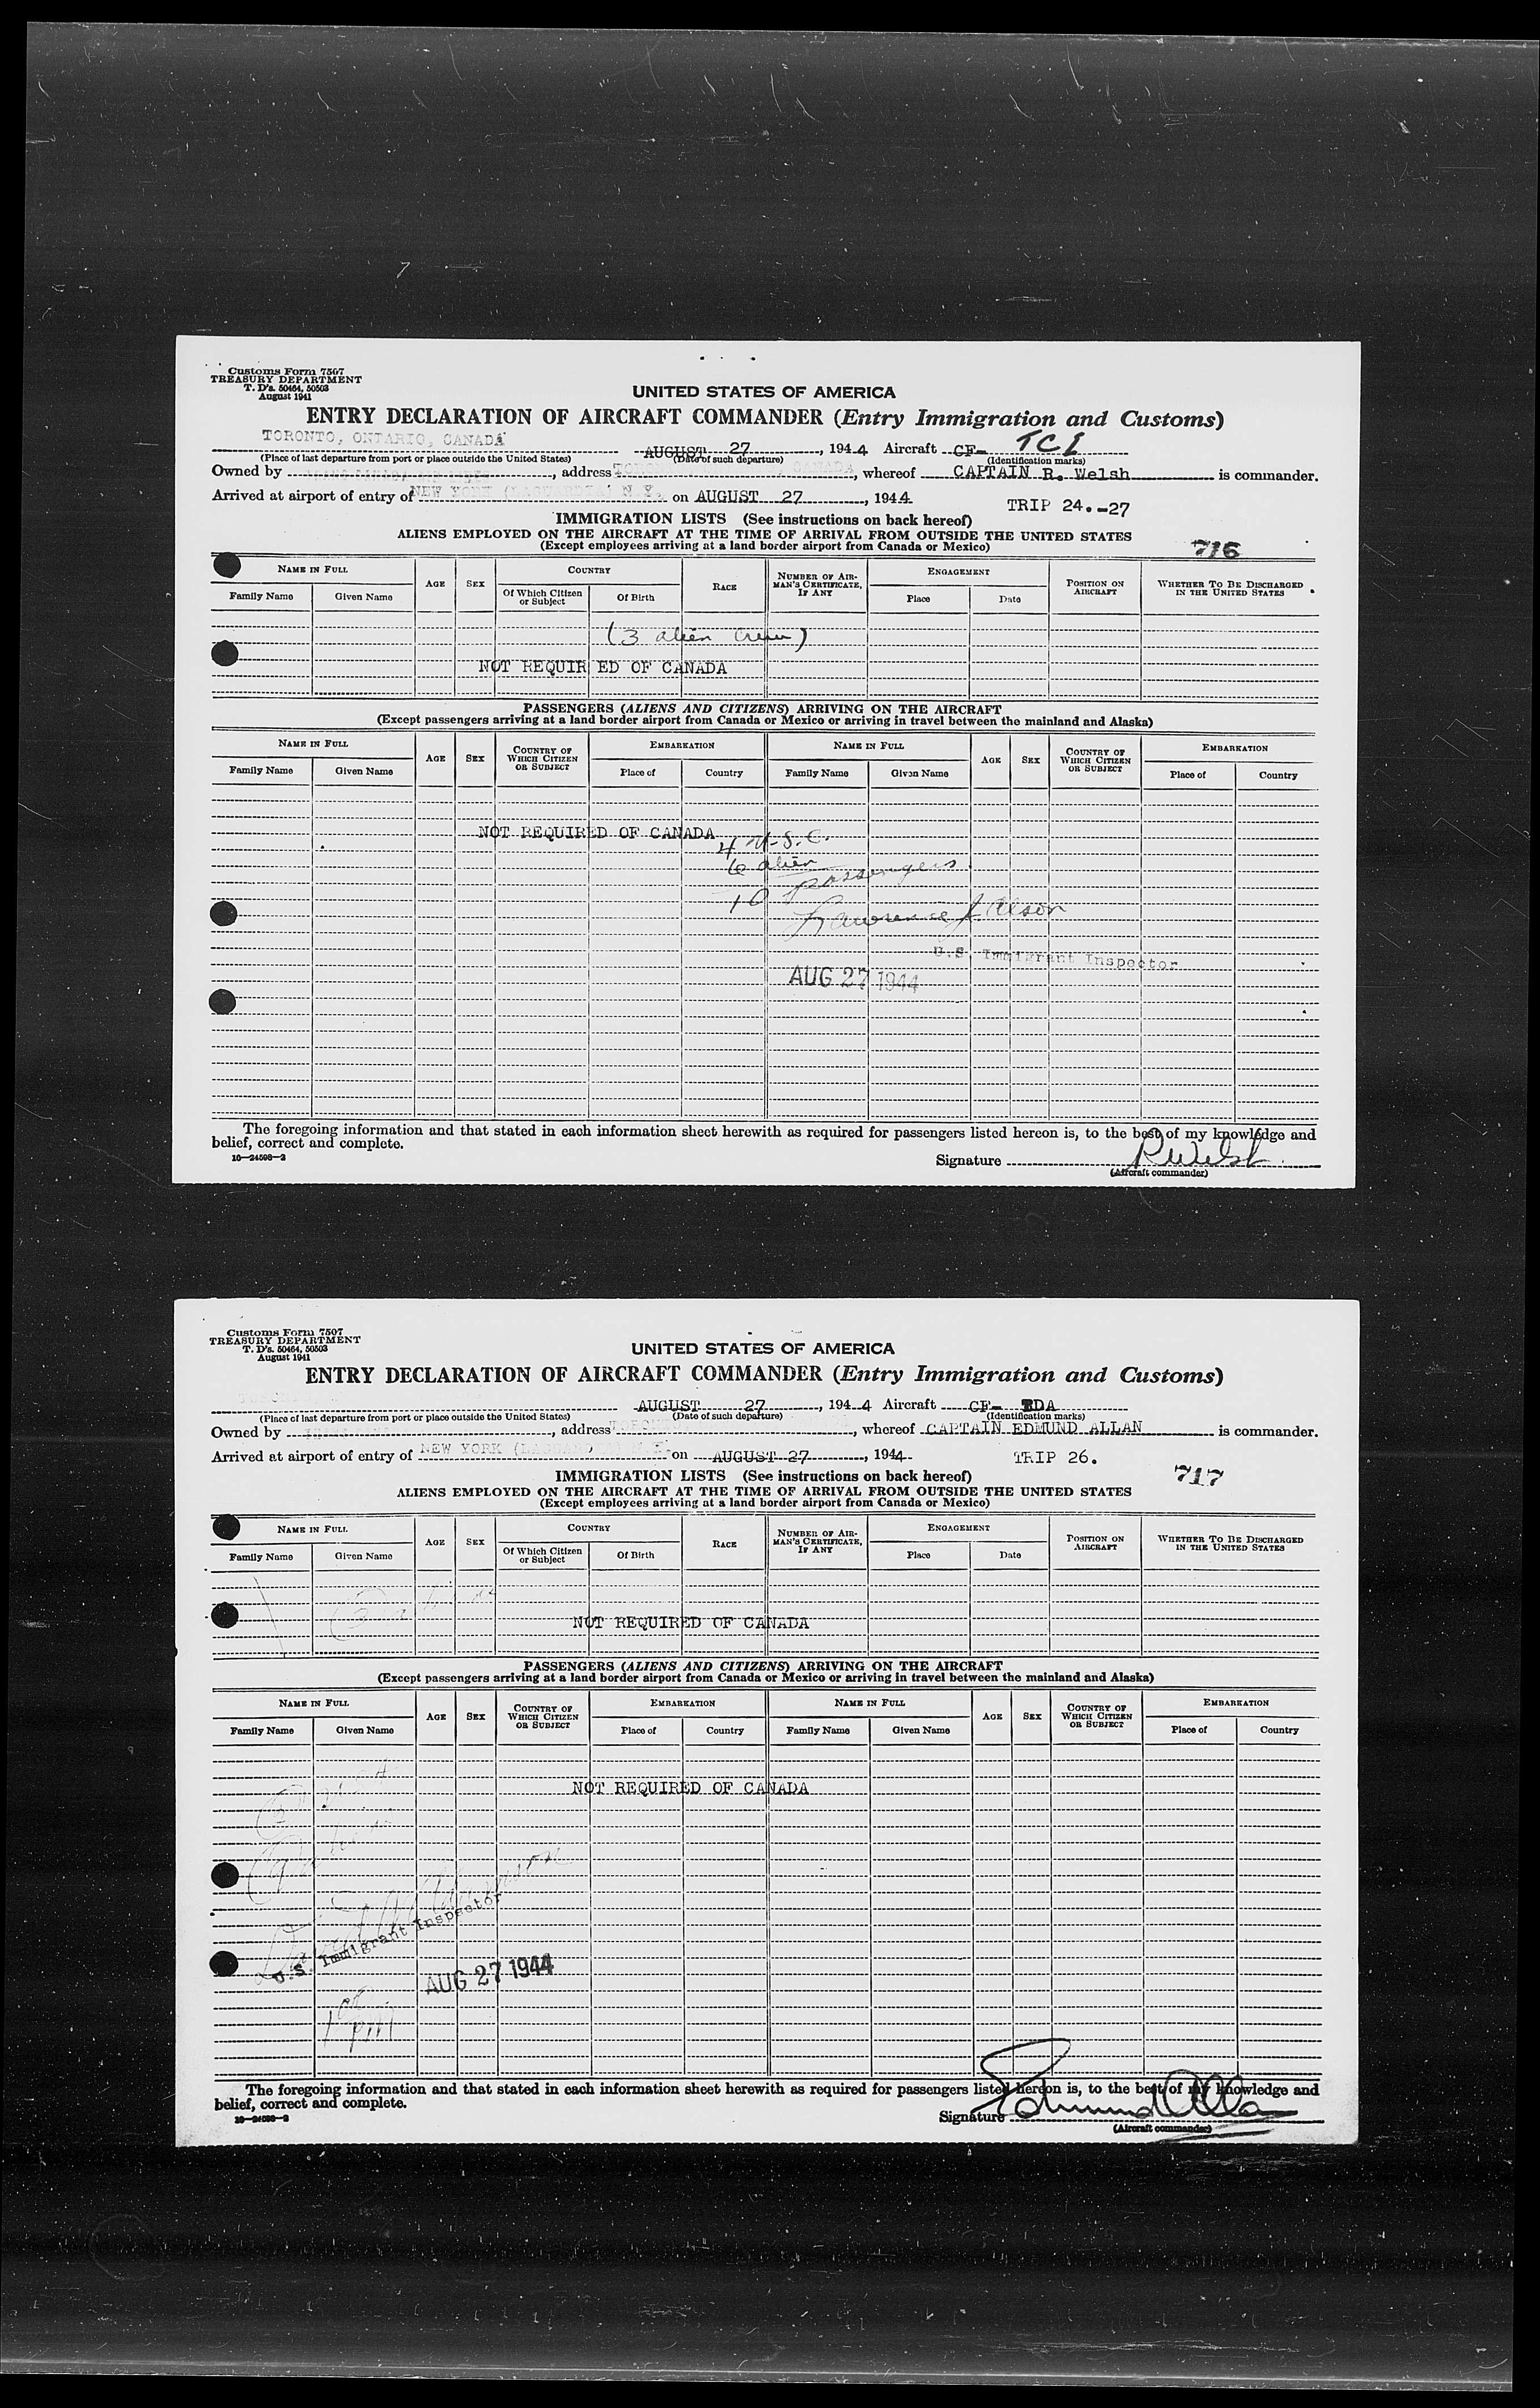 Customs Form 7507
TREASURY DEPARTMENT
T. D's. 50464, 50503
August 1941
UNITED STATES OF AMERICA
ENTRY DECLARATION OF AIRCRAFT COMMANDER (Entry Immigration and Customs)
TORONTO, ONTARIO, CANADA AUGUST 27, 1944 Aircraft CF- TCI
(Place of last departure from port or place outside the United States) (Date of such departure) (Identification marks)
Owned by , address CANADA, whereof CAPTAIN R. Welsh is commander.
Arrived at airport of entry of NEW YORK (LAGUARDIA) N.Y. on AUGUST 27, 1944 TRIP 24.-27
IMMIGRATION LISTS (See instructions on back hereof)
ALIENS EMPLOYED ON THE AIRCRAFT AT THE TIME OF ARRIVAL FROM OUTSIDE THE UNITED STATES
(Except employees arriving at a land border airport from Canada or Mexico) 716
NAME IN FULL AGE SEX COUNTRY RACE NUMBER OF AIRMAN'S CERTIFICATE, IF ANY ENGAGEMENT POSITION ON AIRCRAFT WHETHER TO BE DISCHARGED IN THE UNITED STATES
Family Name Given Name Of Which Citizen or Subject Of Birth Place Date
(3 alien crew)
NOT REQUIRED OF CANADA
PASSENGERS (ALIENS AND CITIZENS) ARRIVING ON THE AIRCRAFT
(Except passengers arriving at a land border airport from Canada or Mexico or arriving in travel between the mainland and Alaska)
NAME IN FULL AGE SEX COUNTRY OF WHICH CITIZEN OR SUBJECT EMBARKATION NAME IN FULL AGE SEX COUNTRY OF WHICH CITIZEN OR SUBJECT EMBARKATION
Family Name Given Name Place of Country Family Name Given Name Place of Country
NOT REQUIRED OF CANADA
4 U.S.C.
6 alien
10 passengers
Lawrence J Olson
U.S. Immigrant Inspector
AUG 27 1944
The foregoing information and that stated in each information sheet herewith as required for passengers listed hereon is, to the best of my knowledge and
belief, correct and complete.
16—24598-2 Signature R Welsh
(Aircraft commander)
Customs Form 7507
TREASURY DEPARTMENT
T. D's. 50464, 50503
August 1941
UNITED STATES OF AMERICA
ENTRY DECLARATION OF AIRCRAFT COMMANDER (Entry Immigration and Customs)
AUGUST 27, 1944 Aircraft CF- TDA
(Place of last departure from port or place outside the United States) (Date of such departure) (Identification marks)
Owned by , address , whereof CAPTAIN EDMUND ALLAN is commander.
Arrived at airport of entry of NEW YORK (LAGUARDIA) N.Y. on AUGUST 27, 1944 TRIP 26.
717
IMMIGRATION LISTS (See instructions on back hereof)
ALIENS EMPLOYED ON THE AIRCRAFT AT THE TIME OF ARRIVAL FROM OUTSIDE THE UNITED STATES
(Except employees arriving at a land border airport from Canada or Mexico)
NAME IN FULL AGE SEX COUNTRY RACE NUMBER OF AIRMAN'S CERTIFICATE, IF ANY ENGAGEMENT POSITION ON AIRCRAFT WHETHER TO BE DISCHARGED IN THE UNITED STATES
Family Name Given Name Of Which Citizen or Subject Of Birth Place Date
NOT REQUIRED OF CANADA
PASSENGERS (ALIENS AND CITIZENS) ARRIVING ON THE AIRCRAFT
(Except passengers arriving at a land border airport from Canada or Mexico or arriving in travel between the mainland and Alaska)
NAME IN FULL AGE SEX COUNTRY OF WHICH CITIZEN OR SUBJECT EMBARKATION NAME IN FULL AGE SEX COUNTRY OF WHICH CITIZEN OR SUBJECT EMBARKATION
Family Name Given Name Place of Country Family Name Given Name Place of Country
NOT REQUIRED OF CANADA
U.S. Immigrant Inspector
AUG 27 1944
The foregoing information and that stated in each information sheet herewith as required for passengers listed hereon is, to the best of my knowledge and
belief, correct and complete.
16—24598-2 Signature Edmund Allan
(Aircraft commander)